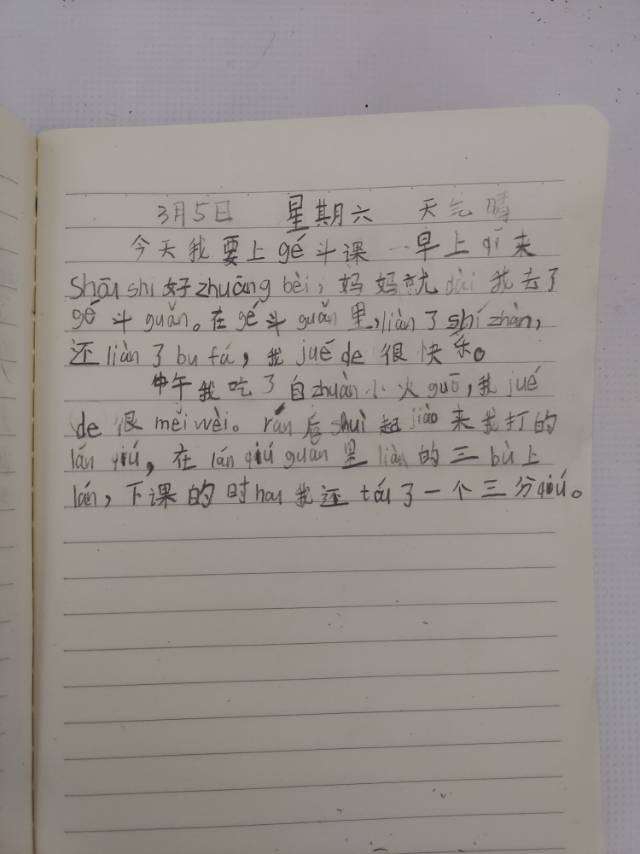 3月5日 星期六 天气晴
今天我要上gé斗课 一早上qǐ来
shōu shi好zhuāng bèi，妈妈就dài我去了
gé斗guǎn。在gé斗guǎn里，liàn了shí zhàn，
还liàn了bu fá，我jué de很快乐。
中午我吃了自zhuàn小火guō，我jué
de很měi wèi。rán后shuì起jiào来我打的
lán qiú，在lán qiú guǎn里liàn的三bù上
lán，下课的时hou我还tóu了一个三分qiú。